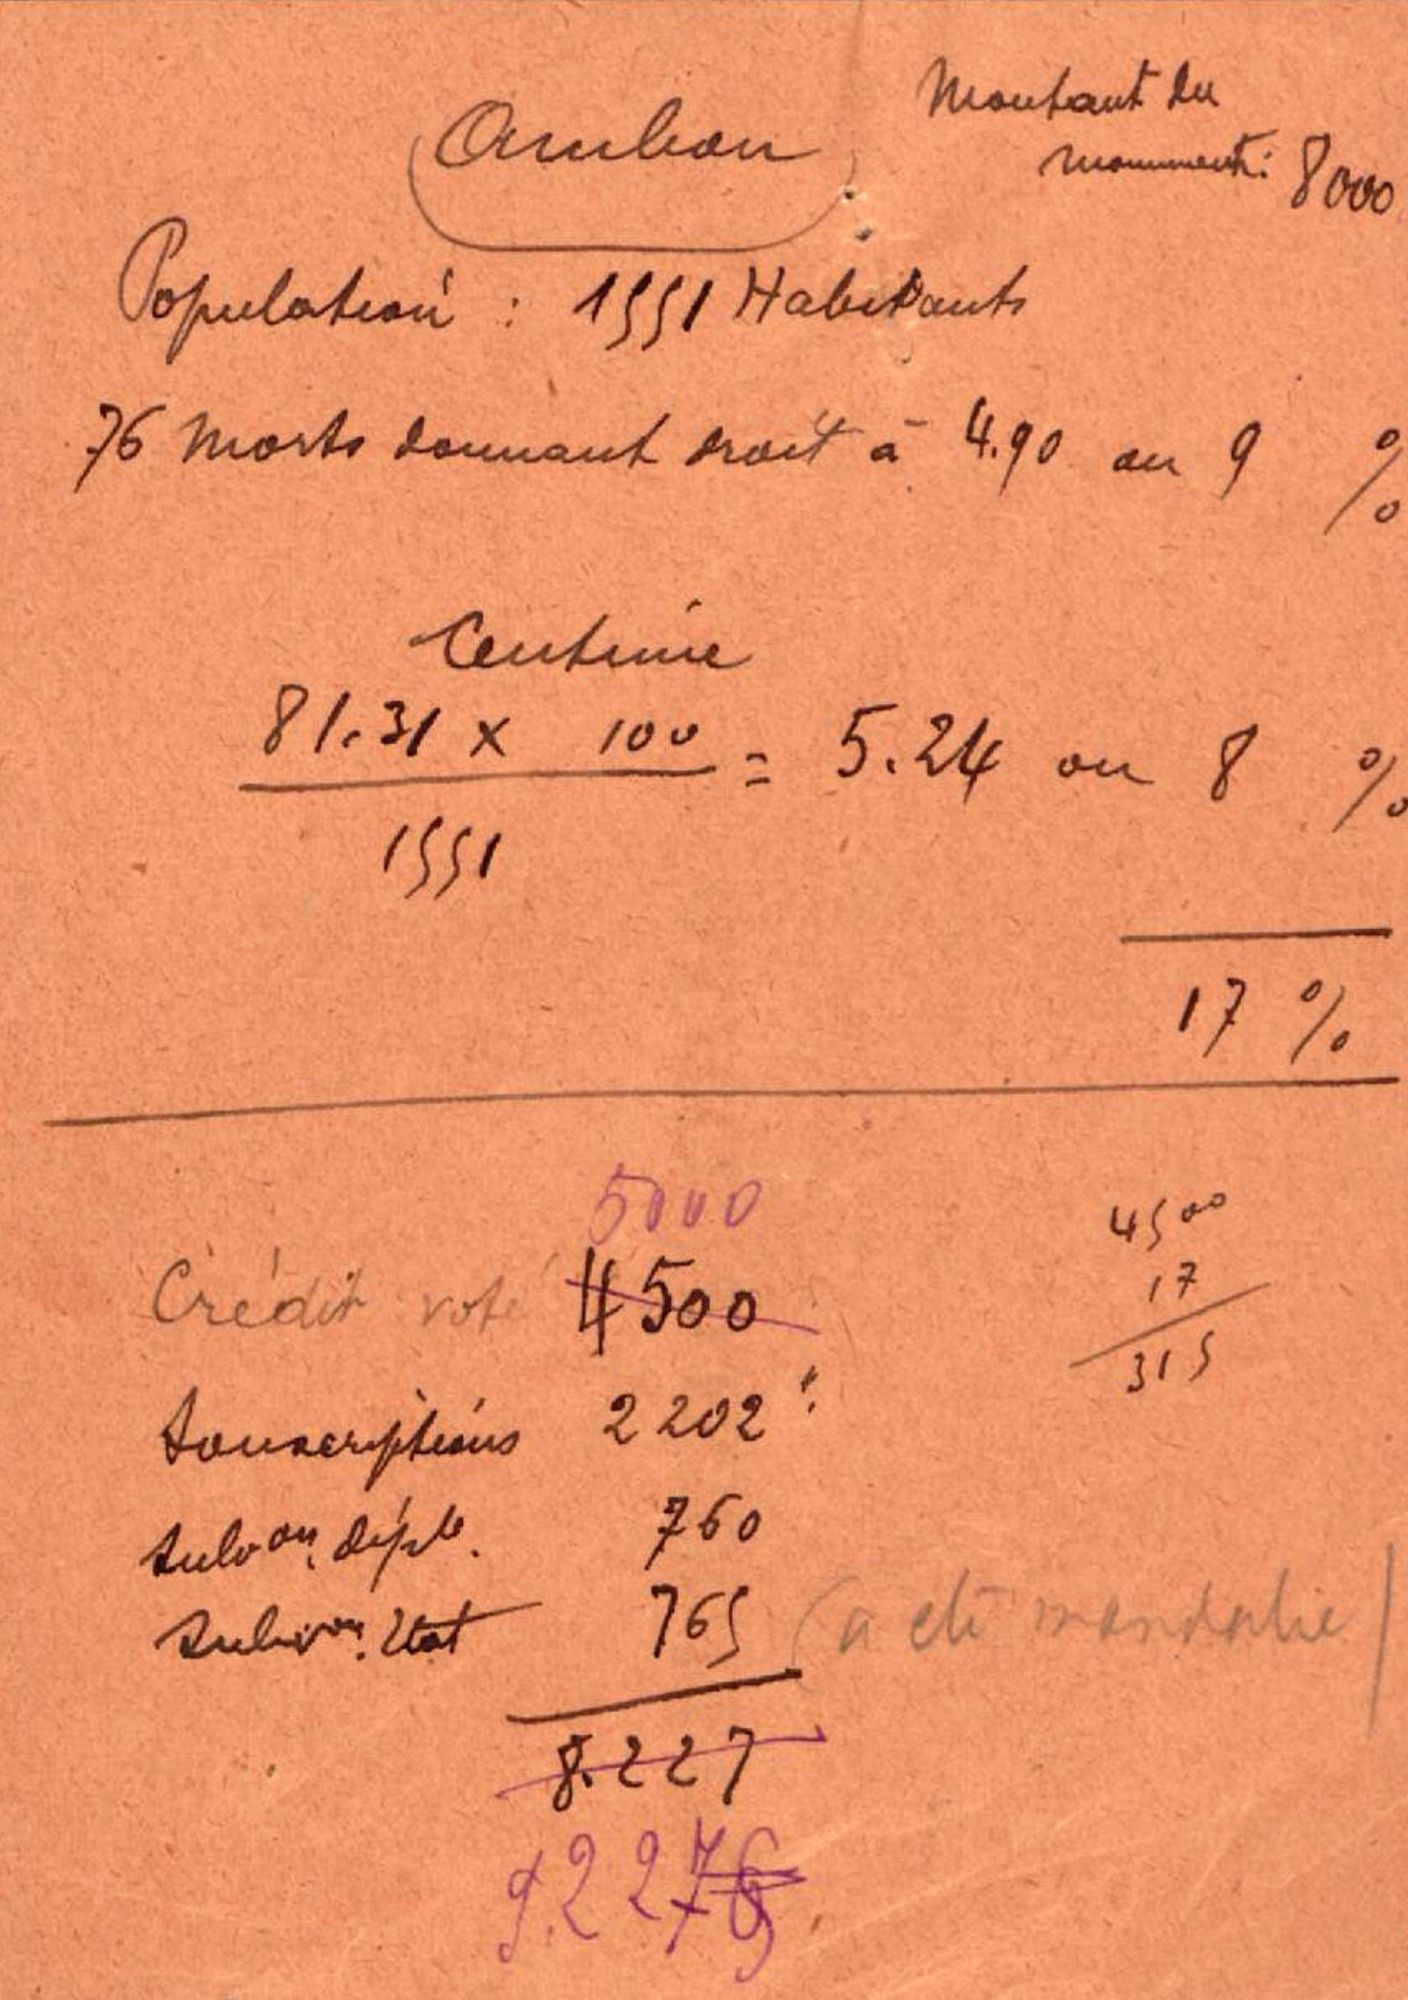 Ambon
Montant du
monument: 8000
Population : 1551 Habitants
76 Morts donnant droit à 4.90 ou 9 %
Centime
81.31 x 100 = 5.24 ou 8 %
1551
17 %
5000
Crédit voté 4500
4500
17
315
Souscriptions 2202 "
Subv on. dépt. 760
Subv on. Etat 765 (a été mandatée)
8.227